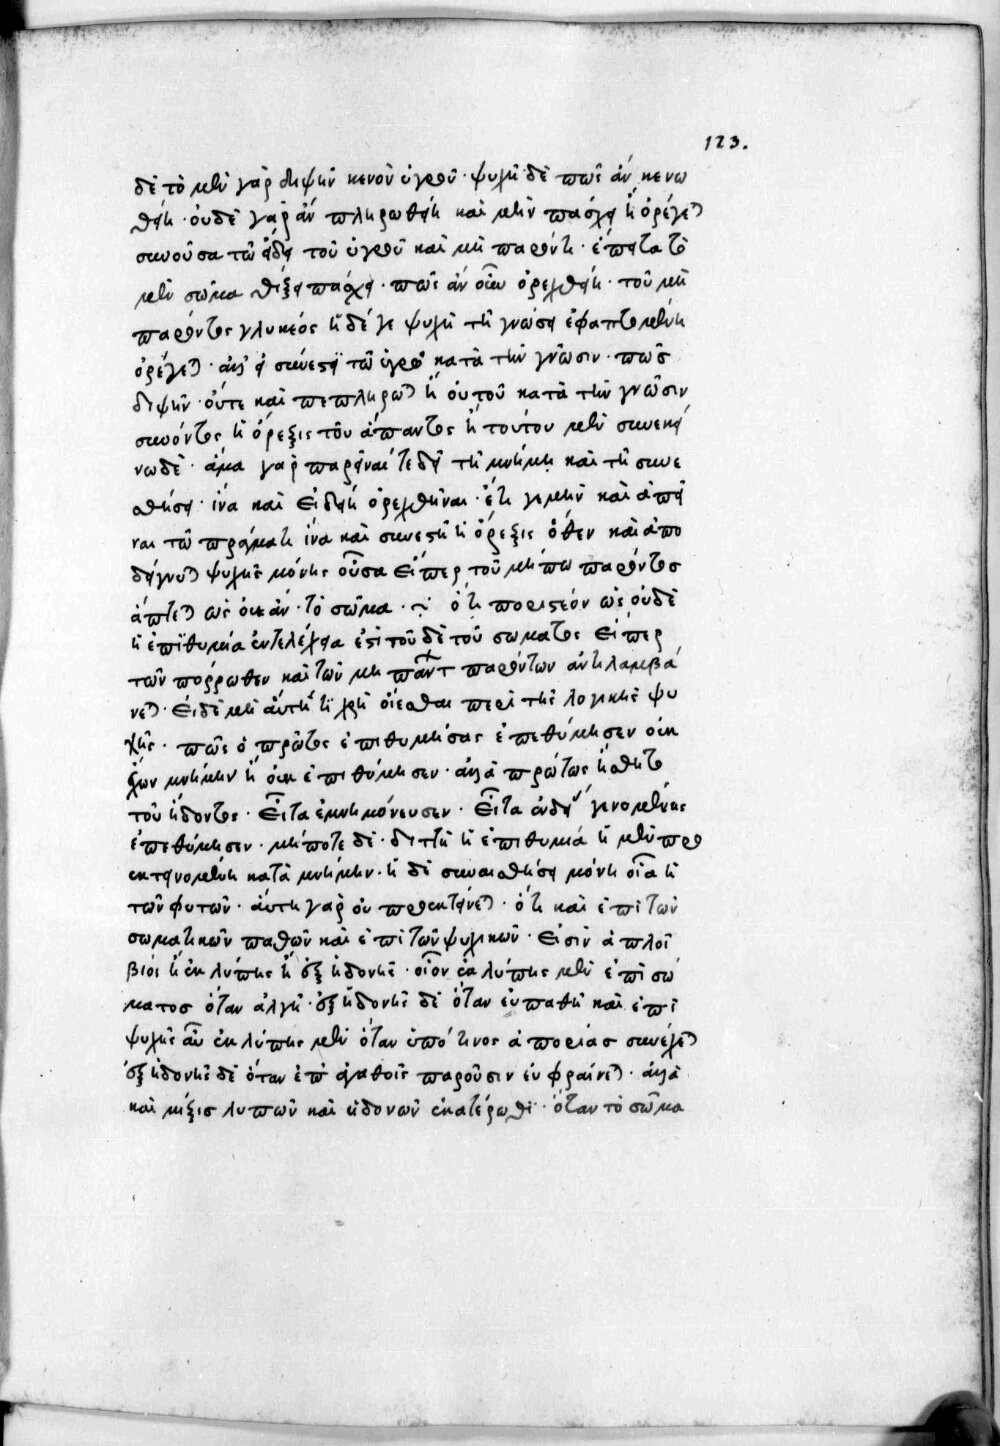 123.
δὲ τὸ μὲν γὰρ διψῆν κενὸν ὑγροῦ· ψυχὴ δὲ πῶς ἂν κενω
θείη· οὐδὲ γὰρ ἂν πληρωθείη καὶ μὴν πάσχει ἢ ὀρέγεται
συνοῦσα τῶ εἴδει τοῦ ὑγροῦ καὶ μὴ παρόντι· ἔπειτα τὸ
μὲν σῶμα θίξει πάσχει· πῶς ἂν οὖν ὀρεχθείη· τοῦ μὴ
παρόντος γλυκέος ἢ δέ γε ψυχὴ τῆ γνώσει ἐφαπτομένη
ὀρέγεται· ἀλλ' εἰ σύνεστι τῶ ὑγρῶ κατὰ τὴν γνῶσιν· πῶς
διψῆν· οὔτε καὶ πεπλήρωται ἢ οὐ τοῦ κατὰ τὴν γνῶσιν
συνόντος ἡ ὄρεξις τοῦ ἀπαντος ἢ τούτου μὲν συνεκεί
νωδὲ· ἅμα γὰρ παρεῖναί τε δεῖ τῆ μνήμη καὶ τῆ συνε
σθήσει· ἵνα καὶ εἰδείη ὀρεχθῆναι· ἔτι γε μὴν καὶ ἀπεῖ
ναι τῶ πράγματι ἵνα καὶ συνεστῆ ἡ ὄρεξις ὅθεν καὶ ἀπο
δείγνυται ψυχῆς μόνης οὖσα εἴπερ τοῦ μήπω παρόντος
ἅπτεται ὡς οὐκ ἂν· τὸ σῶμα· ὅτι ποριστέον ὡς οὐδὲ
ἡ ἐπιθυμία ἐντελέχεια ἐστὶ τοῦδε τοῦ σώματος εἴπερ
τῶν πόρρωθεν καὶ τῶν μὴ πάντη παρόντων ἀντιλαμβά
νεται· εἰ δὲ μὴ αὐτη τί χρὴ οἴεσθαι περὶ τῆς λογικῆς ψυ
χῆς· πῶς ὁ πρῶτος ἐπιθυμήσας ἐπεθύμησεν οὐκ
ἔχων μνήμην ἢ οὐκ ἐπιθύμησεν· ἀλλὰ πρώτως ἤσθητο
τοῦ ἥδοντος· εἶτα ἐμνημόνευσεν· εἶτα ἐνδεὴς γενομένης
ἐπεθύμησεν· μήποτε δὲ· διττὴ ἡ ἐπιθυμία ἡ μὲν προ
εκτεινομένη κατὰ μνήμην· ἡ δὲ συναισθήσει μόνη οἵα ἡ
τῶν φυτῶν· αὕτη γὰρ οὐ προεκτείνεται· ὅτι καὶ ἐπὶ τῶν
σωματικῶν παθῶν καὶ ἐπὶ τῶν ψυχικῶν· εἰσὶν ἁπλοῖ
βίοι ἢ ἐκ λύπης ἢ ἐξ ἡδονῆς· οἷον ἐκ λύπης μὲν ἐπὶ σώ
ματος ὅταν ἀλγῆ· ἐξ ἡδονῆς δὲ ὅταν εὐπαθῆ καὶ ἐπὶ
ψυχῆς αὖ ἐκ λύπης μὲν ὅταν ὑπό τινος ἀπορίας συνέχεται
ἐξ ἡδονῆς δὲ ὅταν ἐπ' ἀγαθοῖς παροῦσιν εὐφραίνεται· ἀλλὰ
καὶ μίξις λυπῶν καὶ ἡδονῶν ἑκατέρωθι· ὅταν τὸ σῶμα